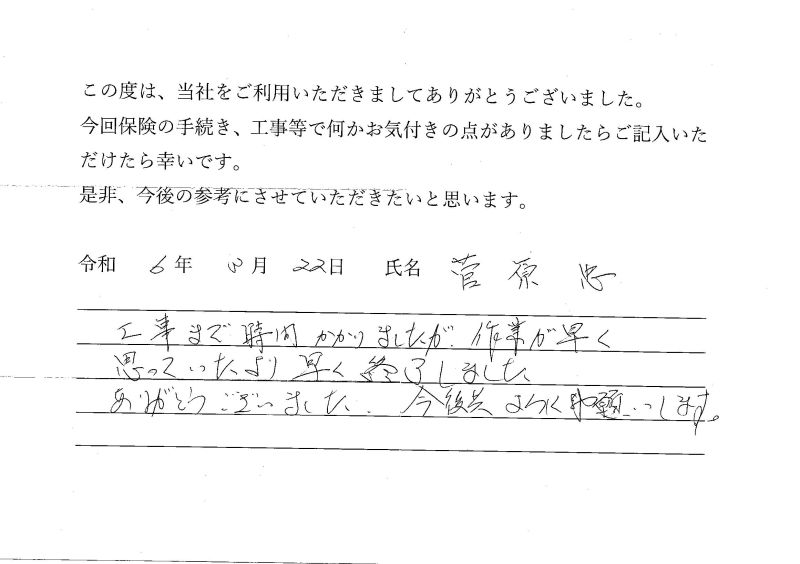 この度は、当社をご利用いただきましてありがとうございました。
今回保険の手続き、工事等で何かお気付きの点がありましたらご記入いた
だけたら幸いです。
是非、今後の参考にさせていただきたいと思います。
令和 6年 3月 22日 氏名 菅原 忠
工事まで時間かかりましたが、作業が早く
思っていたより早く終了しました
ありがとうございました。今後共よろしくお願いします。